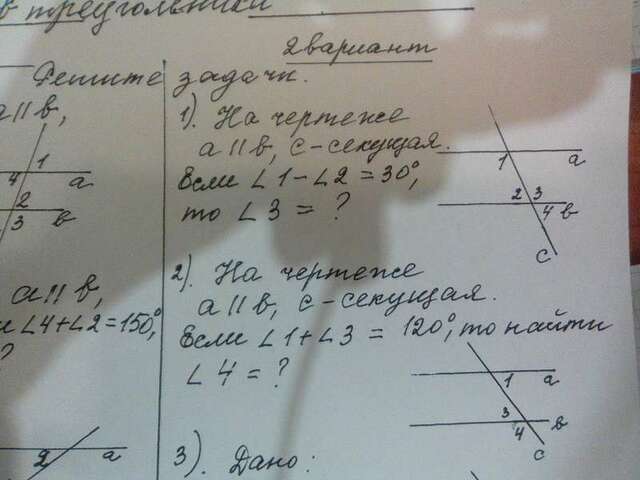 в треугольники
2 вариант
Решите задачи.
a ॥ в,
4 1
a
2
3 в
a ॥ в,
∠4+∠2=150°,
?
2 a
1). На чертеже
a ॥ в, с-секущая.
Если ∠1-∠2=30°,
то ∠3 = ?
1 a
2 3
4 в
с
2). На чертеже
a ॥ в, с-секущая.
Если ∠1+∠3 = 120°, то найти
∠4 = ?
1 a
3 в
4
с
3). Дано: